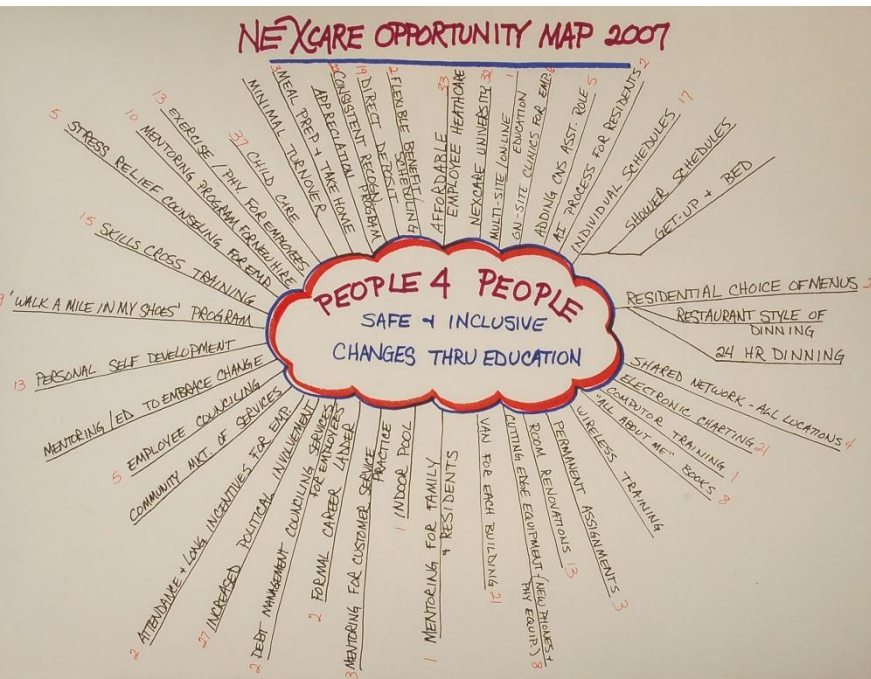 NEXCARE OPPORTUNITY MAP 2007
PEOPLE 4 PEOPLE
SAFE + INCLUSIVE
CHANGES THRU EDUCATION
5 STRESS RELIEF COUNSELING FOR EMP
10 MENTORING PROGRAM FOR NEW HIRE
13 EXERCISE / PHY. FOR EMPLOYEES
37 CHILD CARE
MINIMAL TURNOVER
3 MEAL PREP + TAKE HOME
APPRECIATION
CONSISTENT RECOGN. PROGRAM
19 DIRECT DEPOSIT
2 FLEXIBLE BENEFIT/
SCHEDULING
AFFORDABLE 33
EMPLOYEE HEATHCARE
NEXCARE UNIVERSITY 32
MULTI-SITE/ONLINE
EDUCATION 1
ON-SITE CLINICS FOR EMP. 6
ADDING CNS ASST. ROLE 5
AI PROCESS FOR RESIDENTS 2
INDIVIDUAL SCHEDULES 17
SHOWER SCHEDULES
GET-UP + BED
RESIDENTIAL CHOICE OF MENUS
RESTAURANT STYLE OF
DINNING
24 HR DINNING
SHARED NETWORK - ALL LOCATIONS 4
ELECTRONIC CHARTING 21
COMPUTOR TRAINING 1
"ALL ABOUT ME" BOOKS 8
WIRELESS TRAINING
PERMANENT ASSIGNMENTS 3
ROOM RENOVATIONS 13
CUTTING EDGE EQUIPMENT (NEW PHONES +
PHY EQUIP.) 8
VAN FOR EACH BUILDING 21
1 MENTORING FOR FAMILY
+ RESIDENTS
1 INDOOR POOL
3 MENTORING FOR CUSTOMER SERVICE
PRACTICE
2 FORMAL CAREER LADDER
2 DEBT MANAGEMENT COUNCILING SERVICES
FOR EMPLOYEES
27 INCREASED POLITICAL INVOLVEMENT
2 ATTENDANCE + LONG. INCENTIVES FOR EMP.
COMMUNITY MKT. OF SERVICES
5 EMPLOYEE COUNCILING
MENTORING/ED TO EMBRACE CHANGE
13 PERSONAL SELF DEVELOPMENT
'WALK A MILE IN MY SHOES' PROGRAM
15 SKILLS CROSS TRAINING